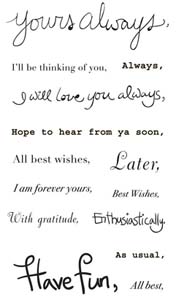 yours always,
I'll be thinking of you, Always,
I will love you always,
Hope to hear from ya soon,
All best wishes, Later,
I am forever yours, Best Wishes,
With gratitude, Enthusiastically,
As usual,
Have fun, All best,